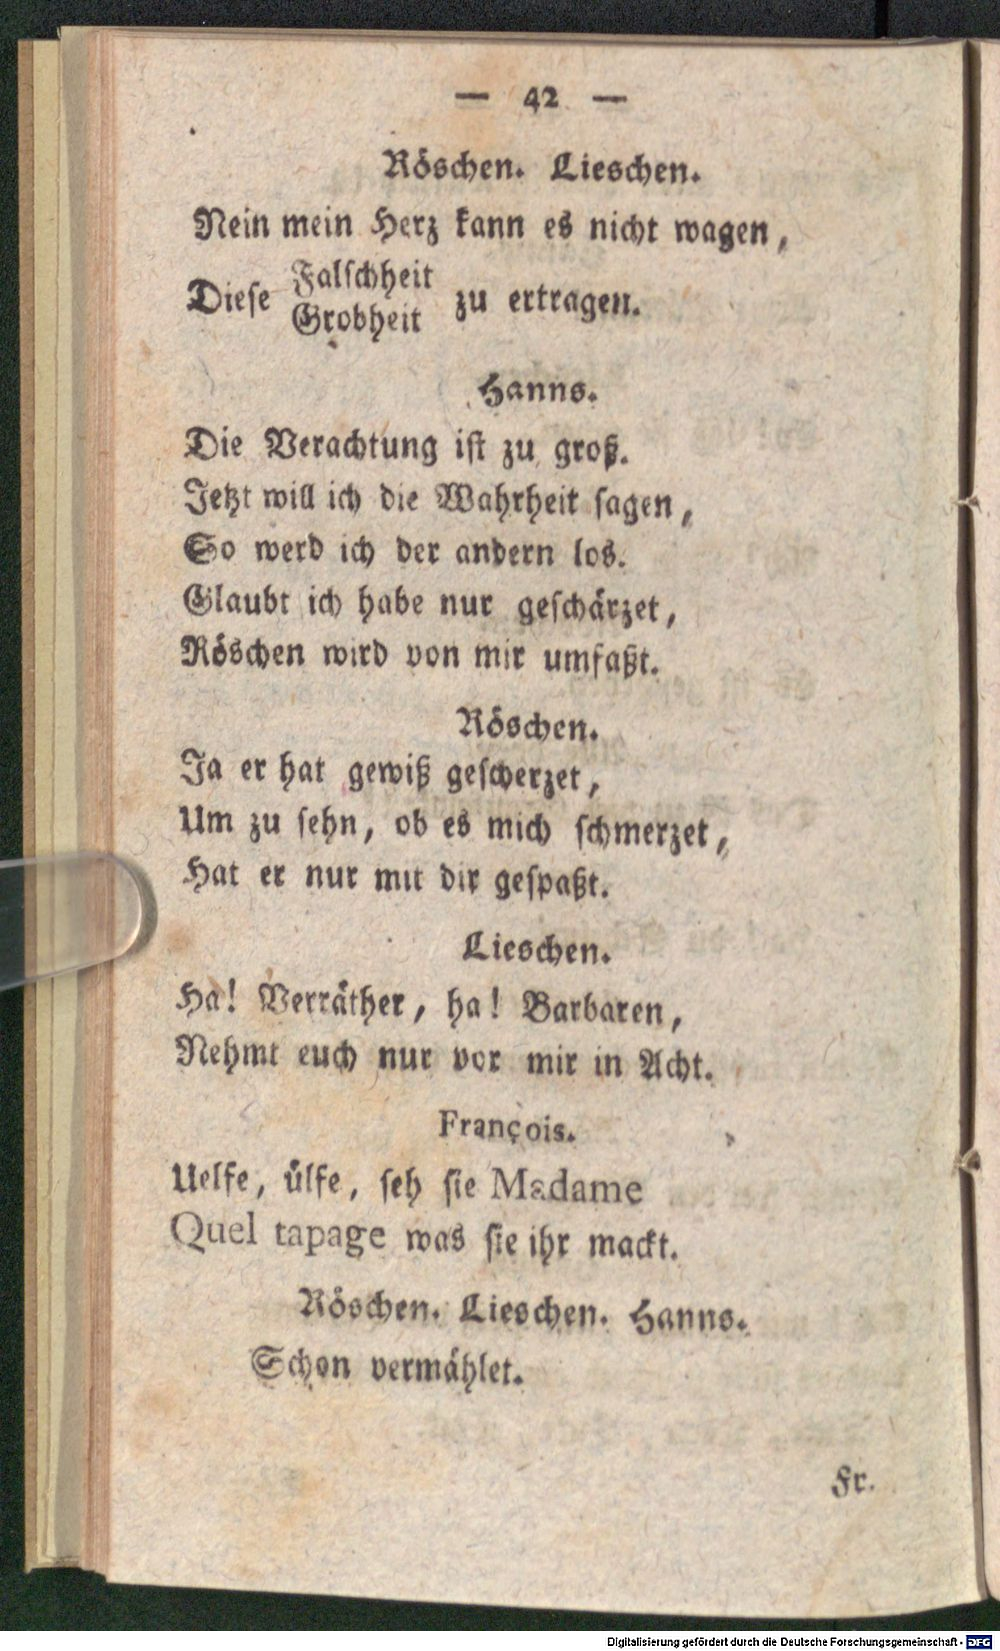 — 42 —
Röschen. Lieschen.
Nein mein Herz kann es nicht wagen,
Diese Falschheit zu ertragen.
Grobheit
Hanns.
Die Verachtung ist zu groß.
Jetzt will ich die Wahrheit sagen,
So werd ich der andern los.
Glaubt ich habe nur geschärzet,
Röschen wird von mir umfaßt.
Röschen.
Ja er hat gewiß gescherzet,
Um zu sehn, ob es mich schmerzet,
Hat er nur mit dir gespaßt.
Lieschen.
Ha! Verräther, ha! Barbaren,
Nehmt euch nur vor mir in Acht.
François.
Uelfe, ülfe, seh sie Madame
Quel tapage was sie ihr mackt.
Röschen. Lieschen. Hanns.
Schon vermählet.
Fr.
Digitalisierung gefördert durch die Deutsche Forschungsgemeinschaft - DFG